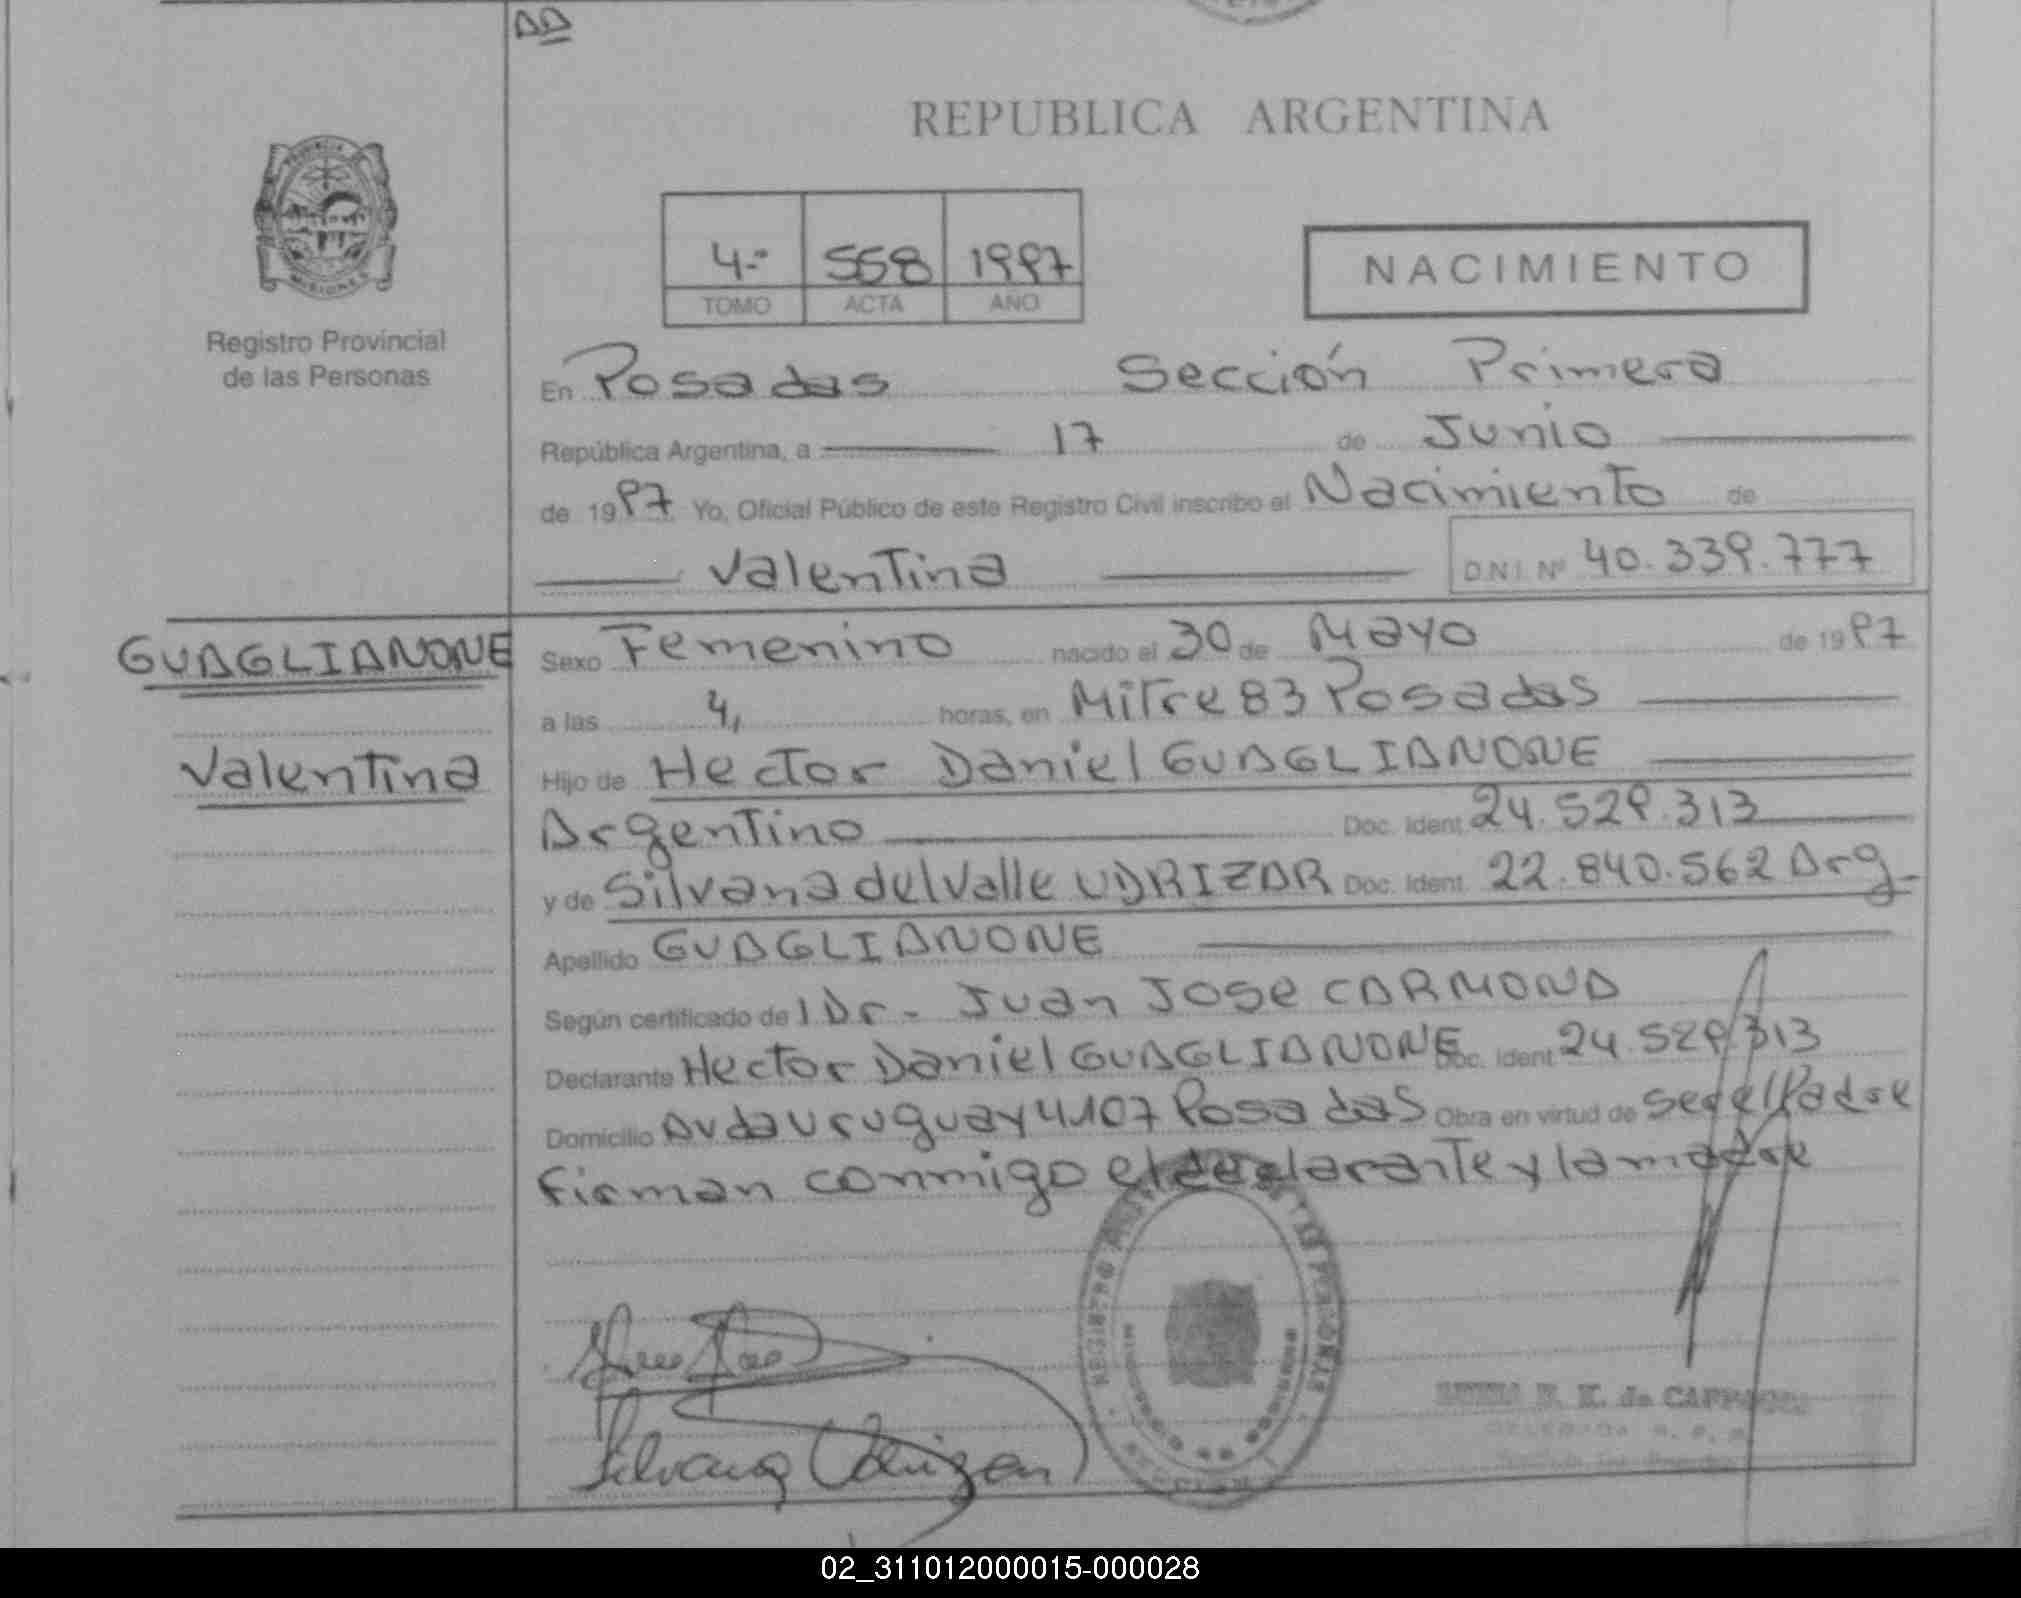 REPUBLICA ARGENTINA
4º 558 1997
TOMO ACTA AÑO
NACIMIENTO
Registro Provincial
de las Personas
En Posadas Sección Primera
República Argentina, a 17 de Junio
de 1997 Yo, Oficial Público de este Registro Civil inscribo el Nacimiento de
Valentina D.N.I. Nº 40.339.777
GUAGLIANONE
Valentina
Sexo Femenino nacido el 30 de Mayo de 1997
a las 4, horas, en Mitre 83 Posadas
Hijo de Hector Daniel GUAGLIANONE
Argentino Doc. Ident. 24.529.313
y de Silvana del Valle UDRIZAR Doc. Ident. 22.840.562 Arg.
Apellido GUAGLIANONE
Según certificado de 1 Dr. Juan Jose CARMONA
Declarante Hector Daniel GUAGLIANONE Doc. Ident. 24.529.313
Domicilio Avda Uruguay 4107 Posadas Obra en virtud de ser el Padre
firman conmigo el declarante y la madre
Silvana Udrizar
02_311012000015-000028